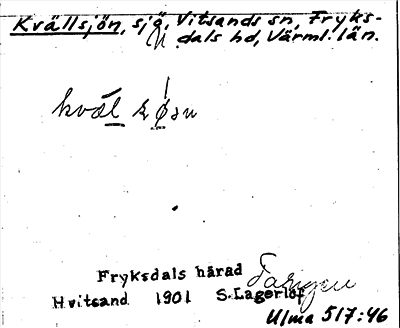 Kvällsjön, sjö, Vitsands sn, Fryks-
dals hd, Värml. län.
Fryksdals härad
Hvitsand 1901 S.Lagerlöf
Ulma 517:46